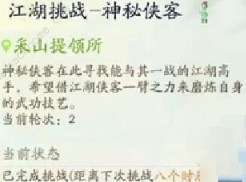 江湖挑战-神秘侠客
采山提领所
神秘侠客在此寻找能与其一战的江湖高
手，希望借江湖侠客一臂之力来磨炼自身
的武功技艺。
当前轮次：2
当前状态
已完成挑战(距离下次挑战八个时